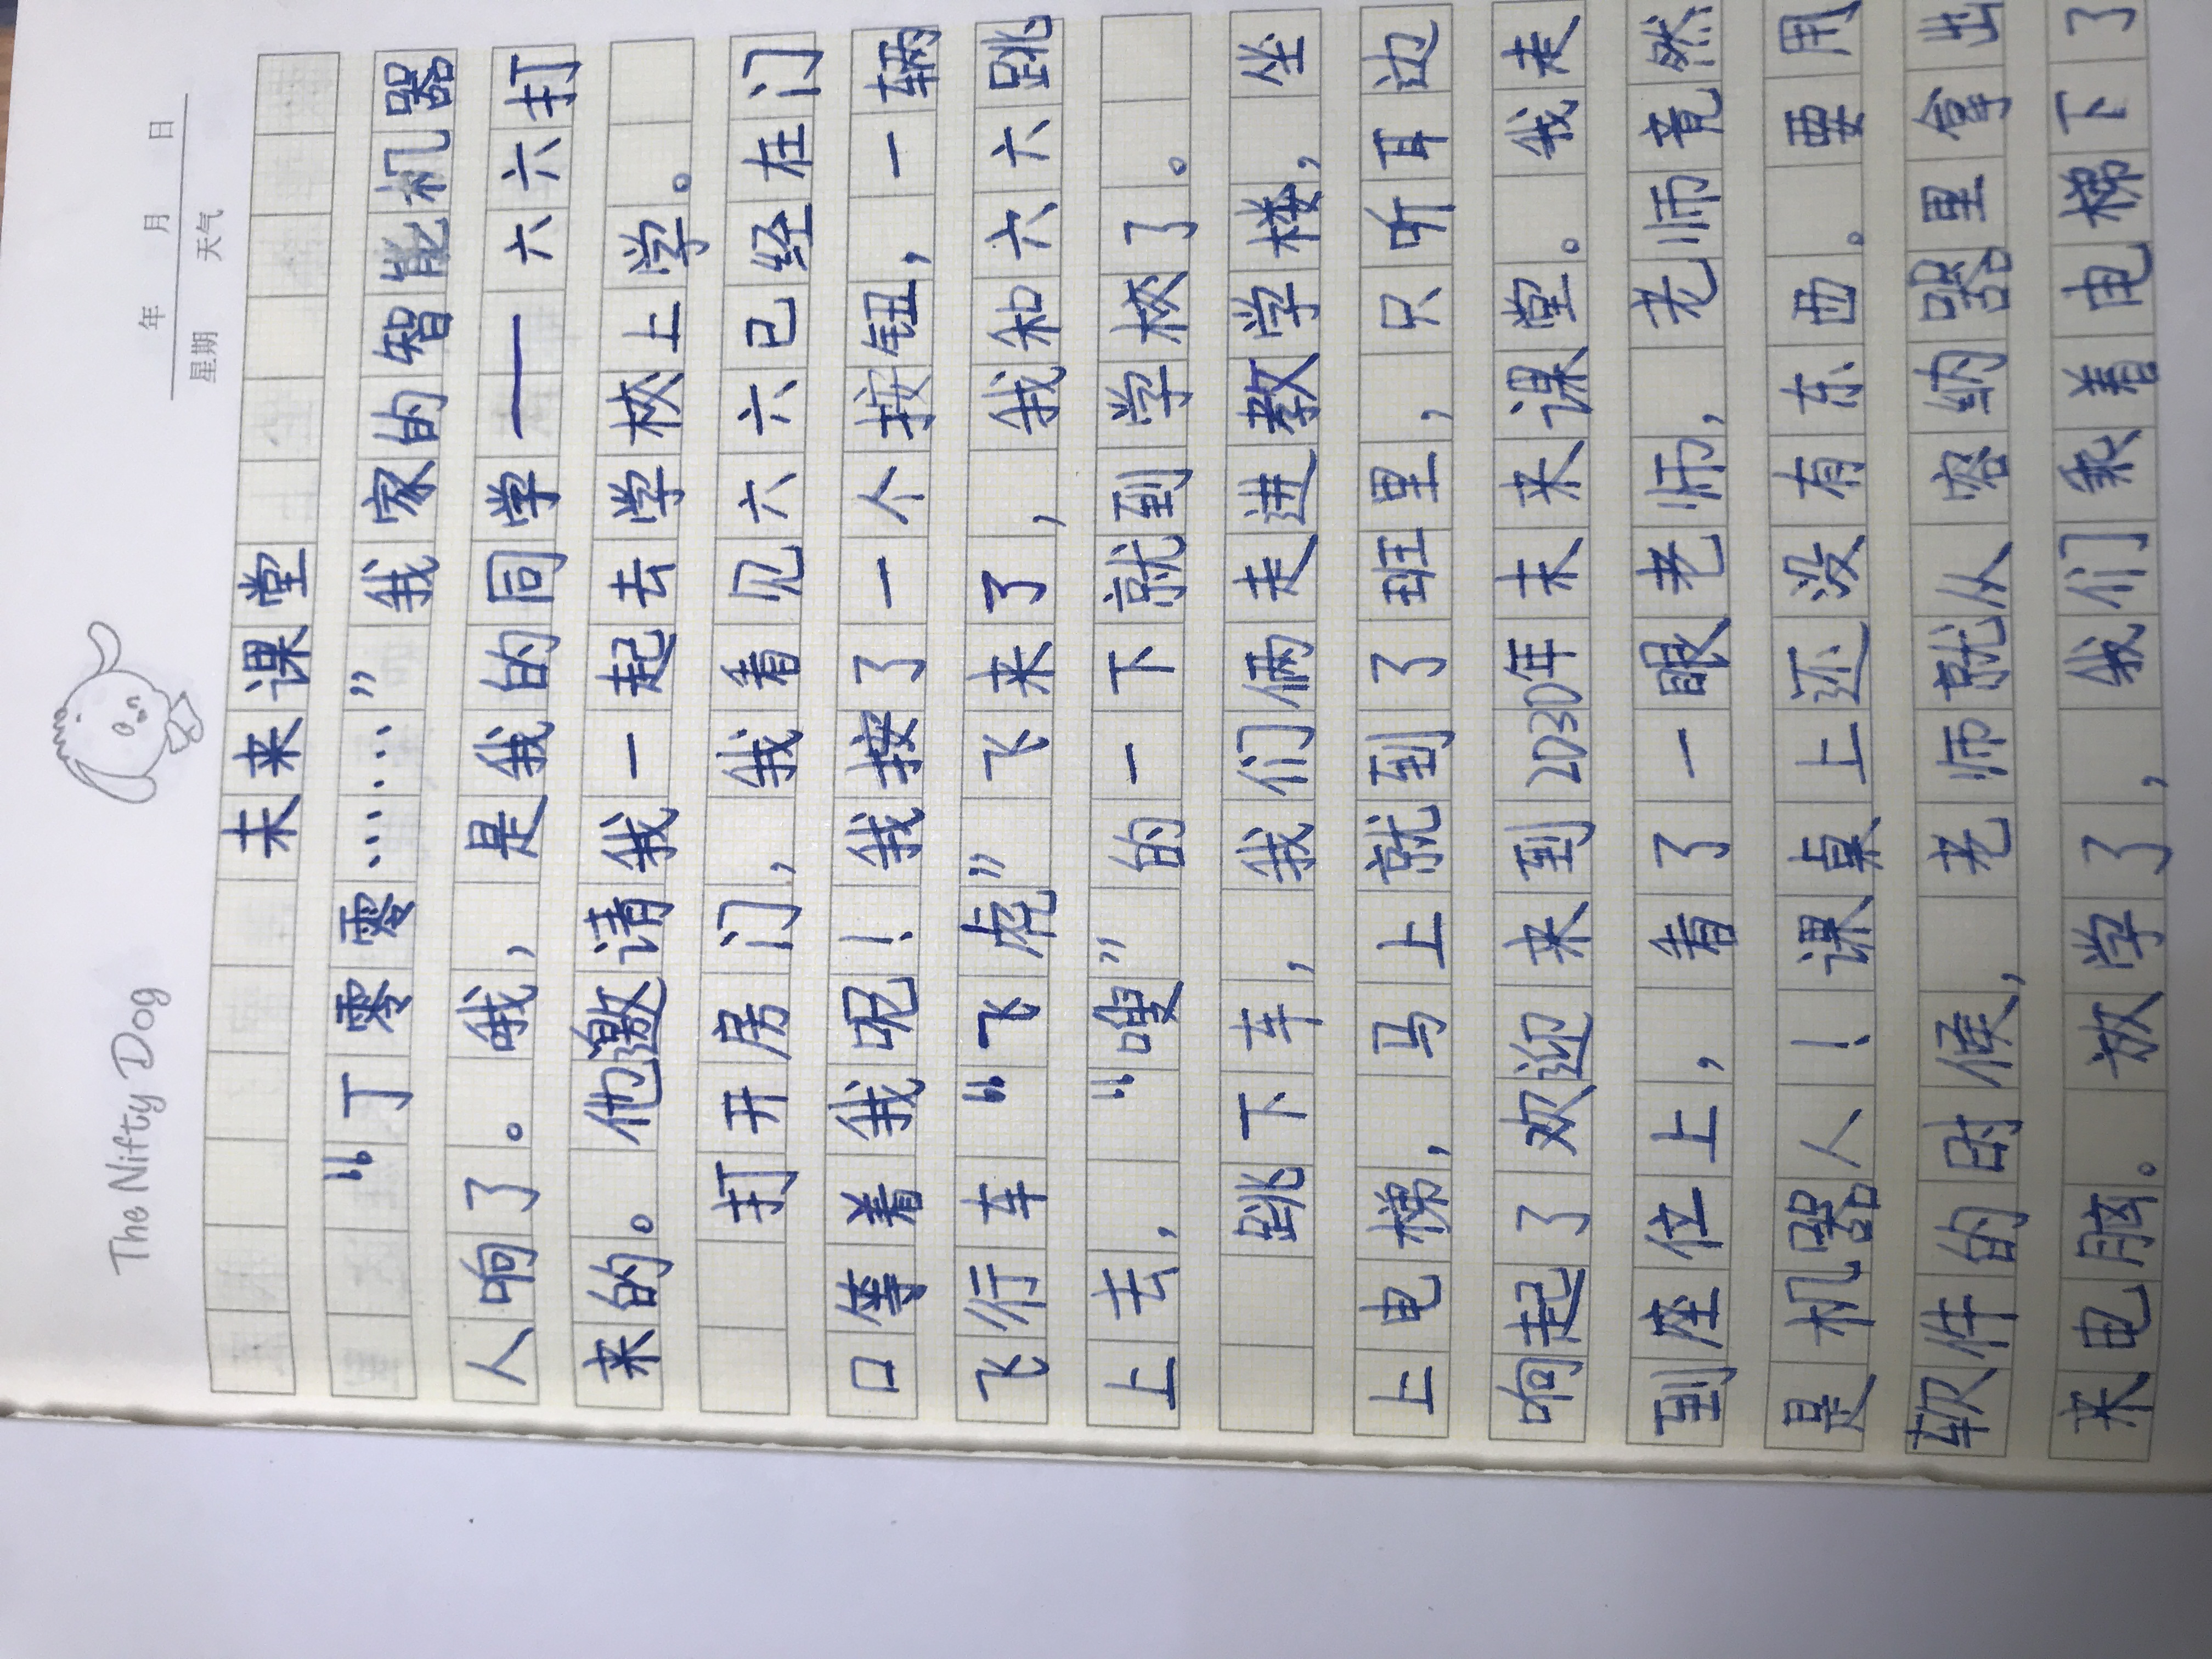 The Nifty Dog
年 月 日
星期 天气
未来课堂
“丁零零……”我家的智能机器
人响了。哦，是我的同学——六六打
来的。他邀请我一起去学校上学。
打开房门，我看见六六已经在门
口等着我呢！我按了一个按钮，一辆
飞行车“飞虎”飞来了，我和六六跳
上去，“嗖”的一下就到学校了。
跳下车，我们俩走进教学楼，坐
上电梯，马上就到了班里，只听耳边
响起了欢迎来到2030年未来课堂。我走
到座位上，看了一眼老师，老师竟然
是机器人！课桌上还没有东西。要用
软件的时候，老师就从容纳器里拿出
来电脑。放学了，我们乘着电梯下了